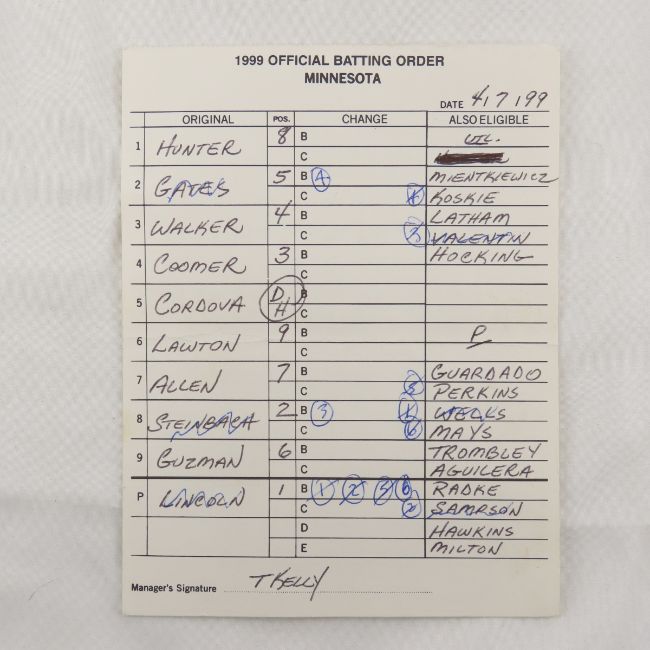 1999 OFFICIAL BATTING ORDER
MINNESOTA
DATE 4/7/99
ORIGINAL POS. CHANGE ALSO ELIGIBLE
1 HUNTER 8 B UTL.
C
2 GATES 5 B 4 MIENTKIEWICZ
C KOSKIE
3 WALKER 4 B LATHAM
C 3 VALENTIN
4 COOMER 3 B HOCKING
C
5 CORDOVA DH B
C
6 LAWTON 9 B P
C
7 ALLEN 7 B GUARDADO
C 5 PERKINS
8 STEINBACH 2 B 3 1 WELLS
C 6 MAYS
9 GUZMAN 6 B TROMBLEY
C AGUILERA
P LINCOLN 1 B 1 2 5 6 RADKE
C 2 SAMPSON
D HAWKINS
E MILTON
Manager's Signature T KELLY